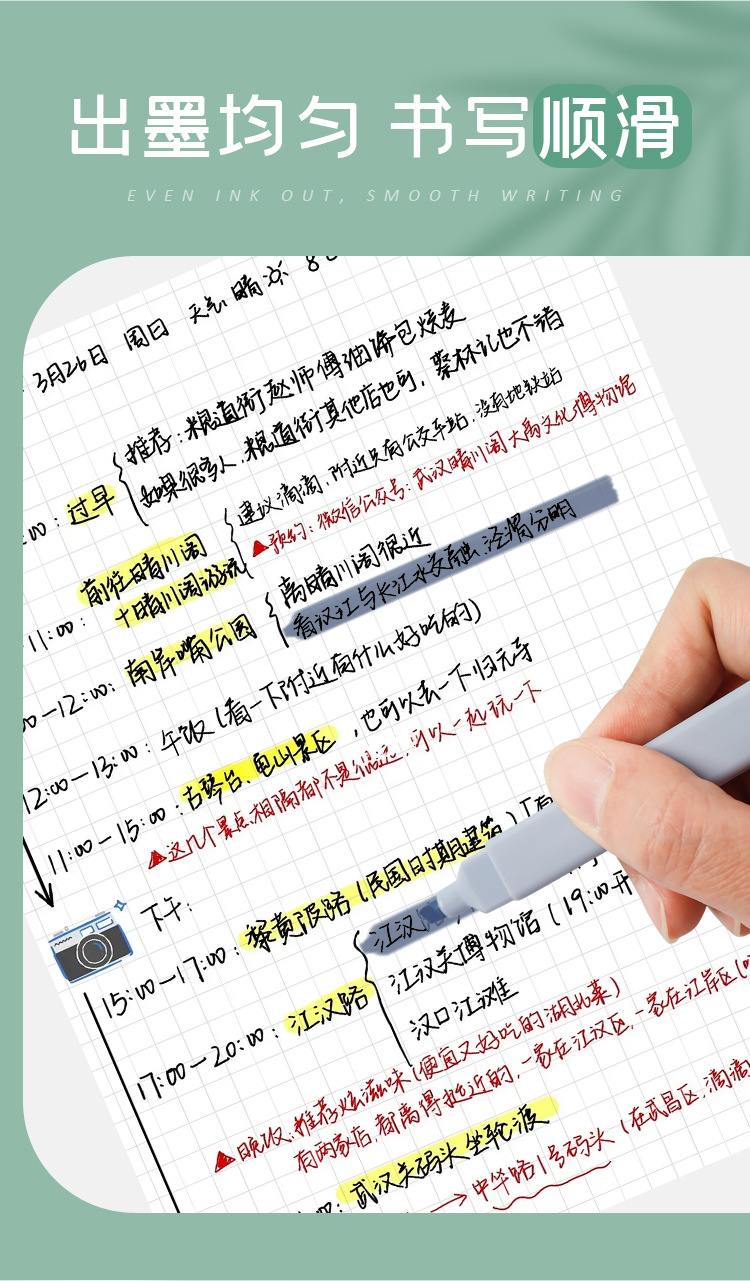 出墨均匀 书写顺滑
EVEN INK OUT, SMOOTH WRITING
3月26日 周日 天气 晴
推荐：粮道街赵师傅油饼包烧麦
如果很多人，粮道街其他店也可，聚林礼也不错
:00：过早
建议滴滴，附近只有公交车站，没有地铁站
▲预约：微信公众号：武汉晴川阁大禹文化博物馆
11:00：前往晴川阁
+晴川阁游玩
离晴川阁很近
看汉江与长江水交融，泾渭分明
00—12:00：南岸嘴公园
12:00—13:00：午饭（看一下附近有什么好吃的）
11:00—15:00：古琴台、龟山景区，也可以去一下归元寺
▲这几个景点相隔都不是很远，可以一起玩一下
下午：
15:00—17:00：黎黄陂路（民国时期建筑）
17:00—20:00：江汉路
江汉
江汉关博物馆（19:00开
汉口江滩
▲晚饭：推荐炫滋味（便宜又好吃的湖北菜）
有两家店，都离得挺近的，一家在江汉区，一家在江岸区
:00：武汉关码头坐轮渡
→中华路1号码头（在武昌区，滴滴